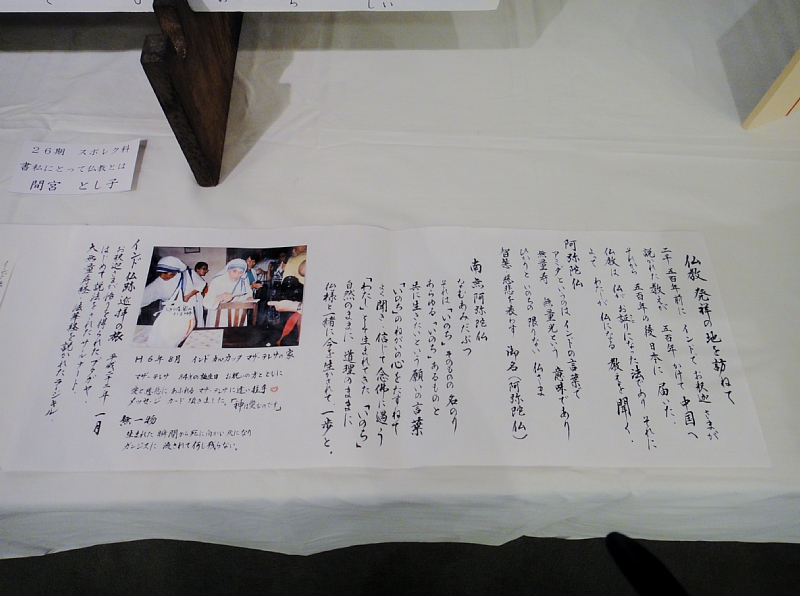 ２６期　スポレク科
書私にとって仏教とは
間宮　とし子
仏教発祥の地を訪ねて
二千五百年前にインドで、お釈迦さまが
説かれた教えが　五百年かけて　中国へ
それから　五百年の後日本に　届いた。
仏教は　仏がお証りになった法であり　それに
よって　わたしが　仏になる　教えを　聞く。
阿弥陀仏
アミダというのは　インドの言葉で
無量寿　無量光という　意味であり
ひかりと　いのちの　限りない　仏さま
智慧　慈悲を表わす　御名（阿弥陀仏）
南無阿弥陀仏
なもあみだぶつ
それは、「いのち」そのものの　名のり
あらゆる「いのち」あるものと
共に生きたいという　願いの言葉
「いのち」のねがいの心をたずねて
よく聞き　信じて　念佛に遇う
「わたし」
自然のままに　道理のままに
仏様と一緒に今を生かされて　一歩と。
Ｈ６年８月　インド　カルカッタ　マザーテレサの家
マザーテレサ
メッセージカード頂きました。
無一物
生まれた瞬間から死に向かい　灰になり
ガンジスに　流されて何も残らない。
インド仏跡巡拝の旅　平成二十九年　一月
お釈迦さまが悟りを得られたブッダガヤ、
はじめて　説法をされた　サルナート、
大無量寿経　法華経を説かれたラージギル、